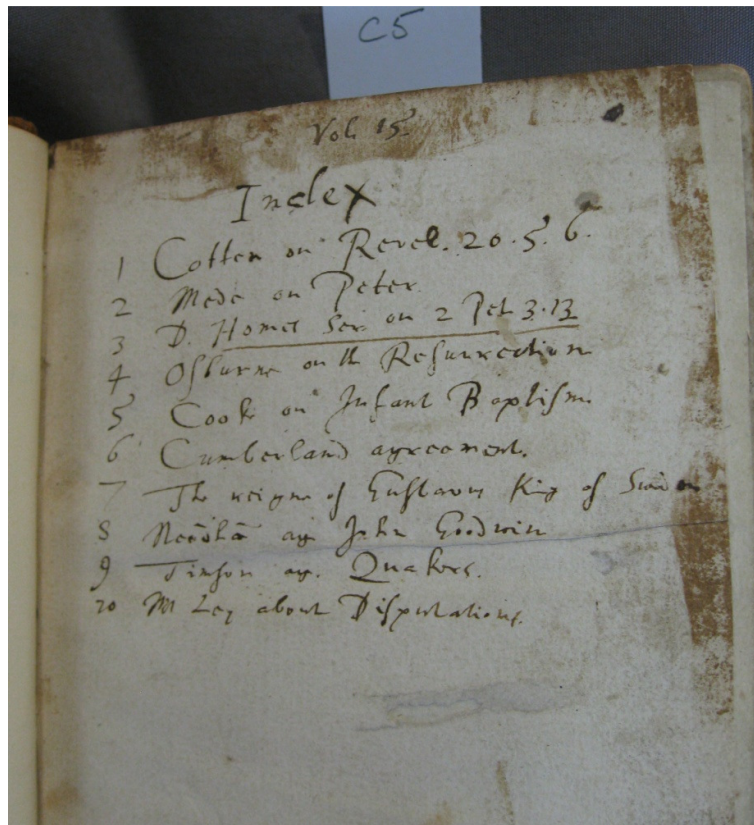 C5
Vol. 15.
Index
1 Cotten on Revel. 20. 5. 6.
2 Mede on Peter.
3 D. Homes Ser. on 2 Pet 3.13
4 Osburne on th Resurrection
5 Cook on Infant Baptism.
6 Cumberland agreement.
7 The reigne of Gustavus King of
8 Needhā ag John Goodwin
9 Timson ag. Quakers.
10 M Ley about Disputations.